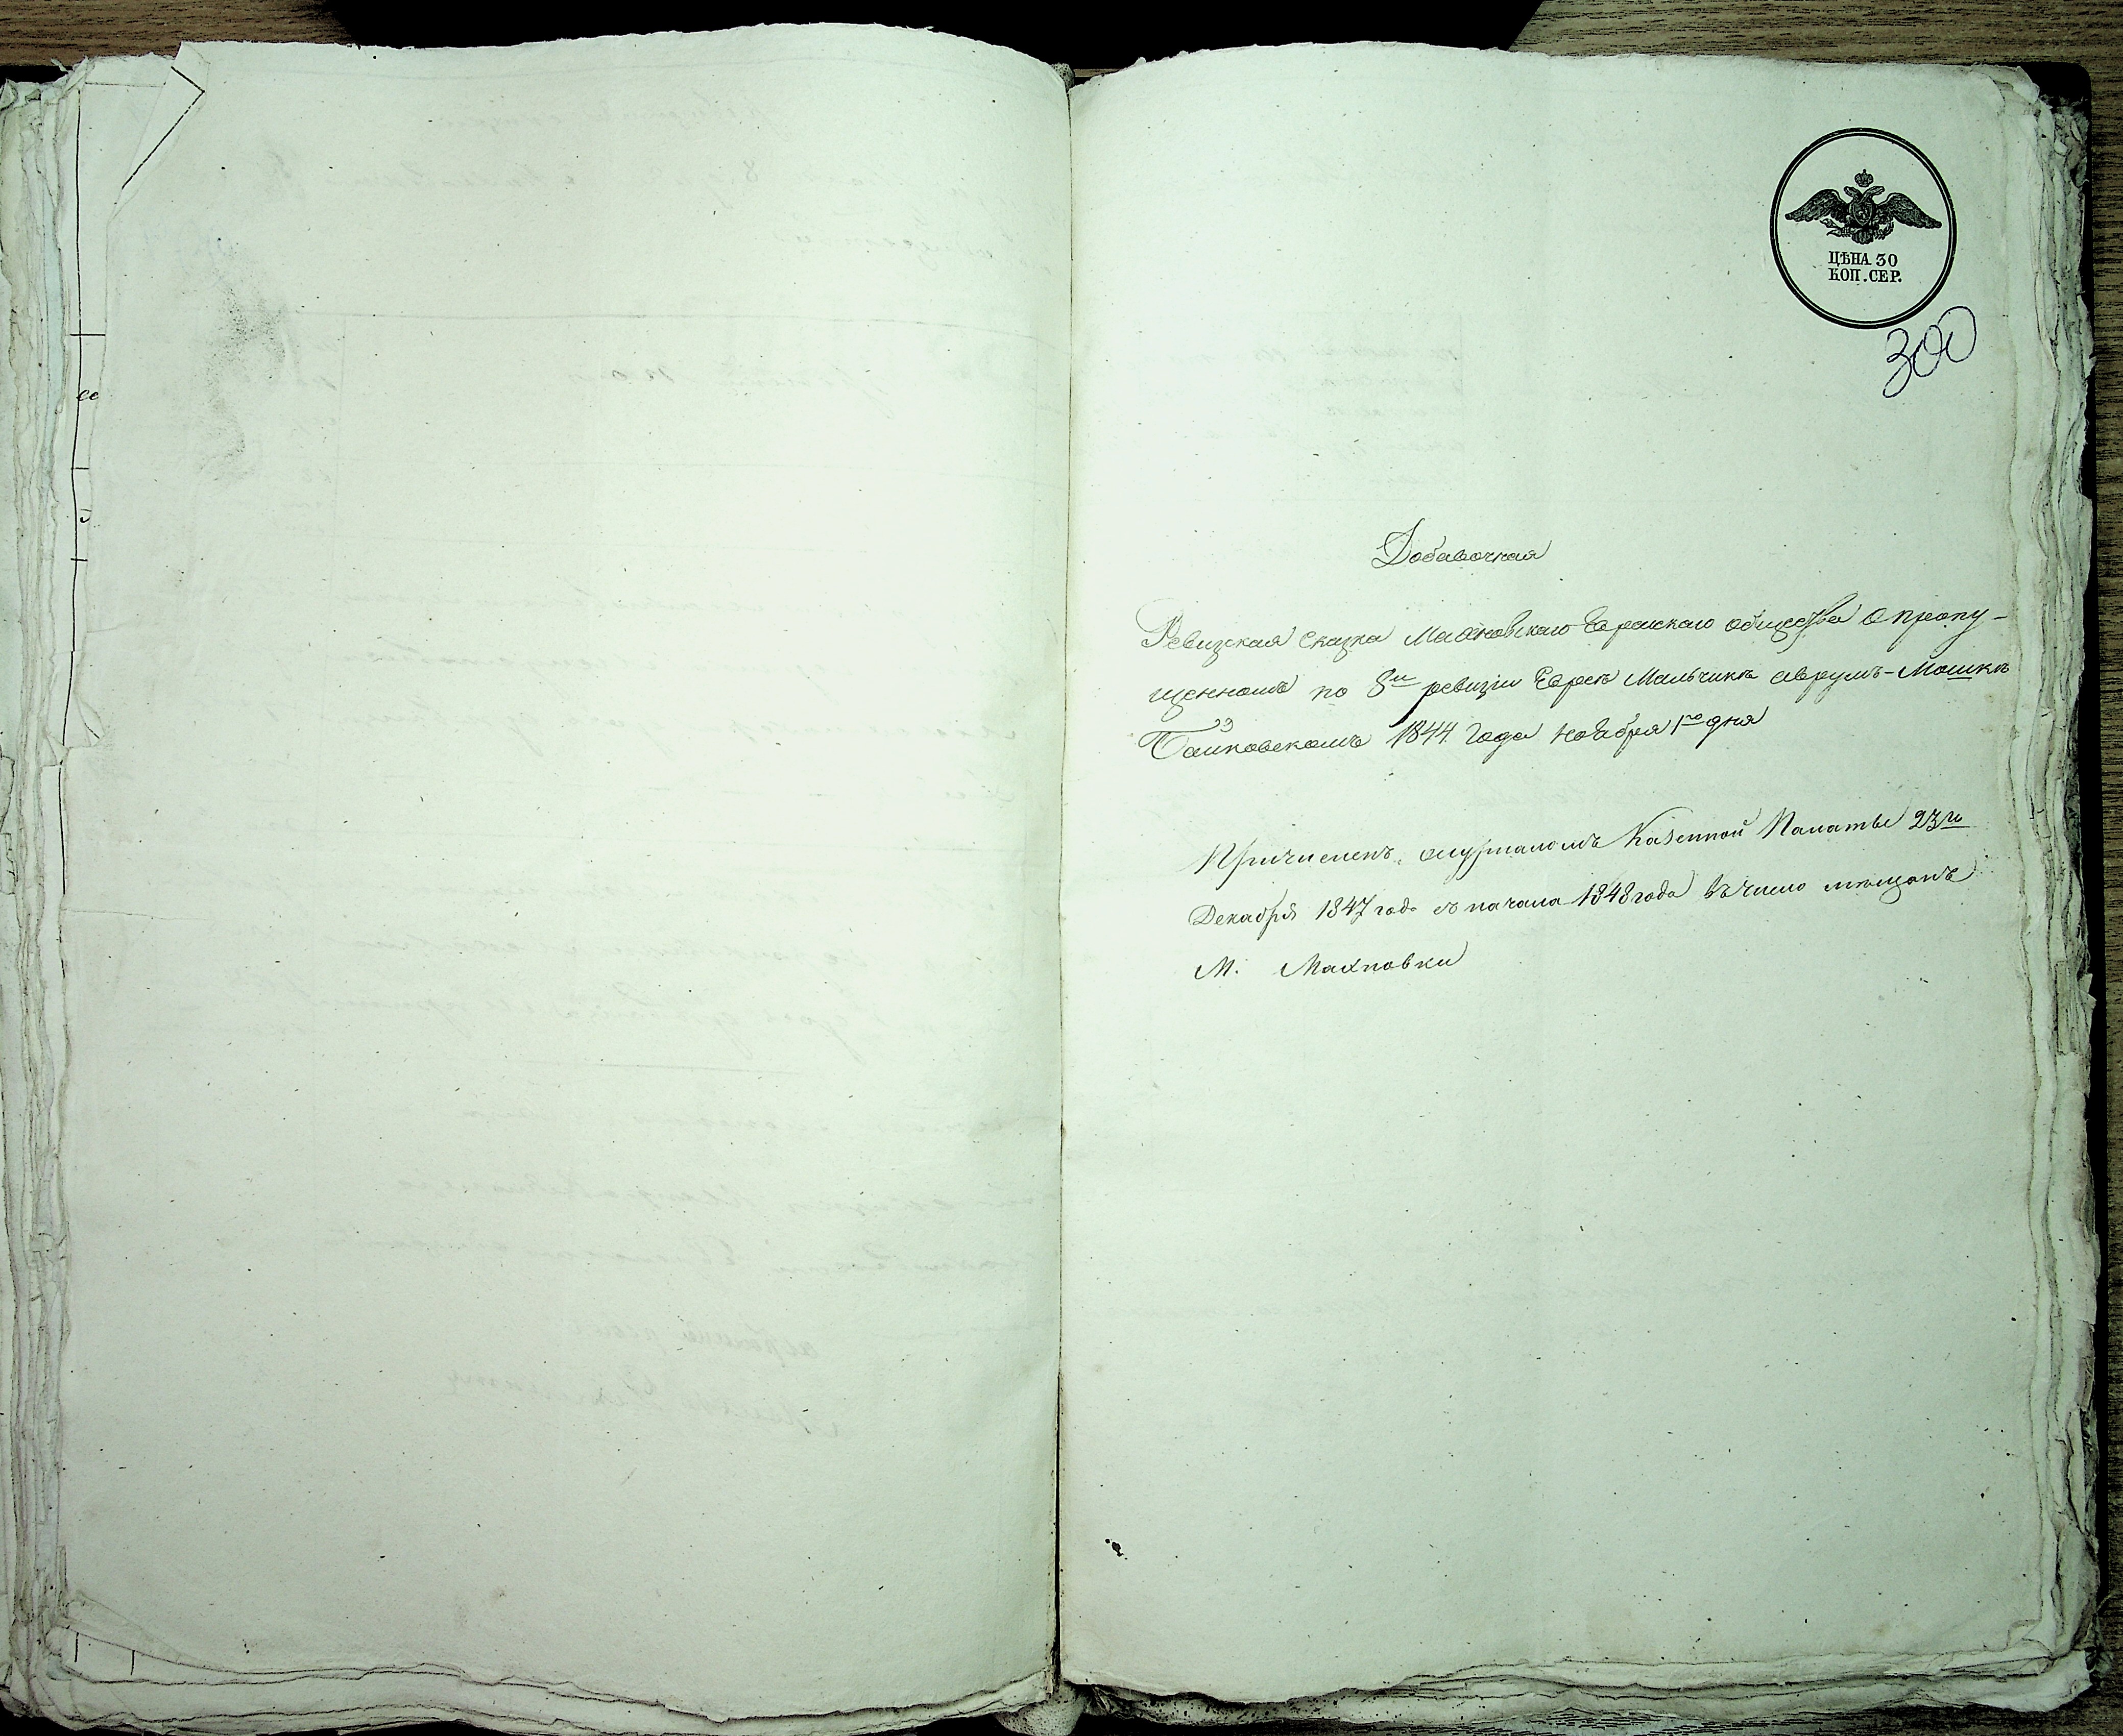 ЦѢНА 30
КОП. СЕР.
300
Добавочная
Ревизская сказка Махновскаго Еврейскаго общества о пропу-
щенномъ по 8й ревизіи Еврея Мальчика Аврумъ-Мошка
1844 Года Ноября 1го дня
Причисленъ журналомъ Казенной Палаты 23го
Декабря 1847 года съ начала 1848 года въ число мѣщанъ
М. Махновки